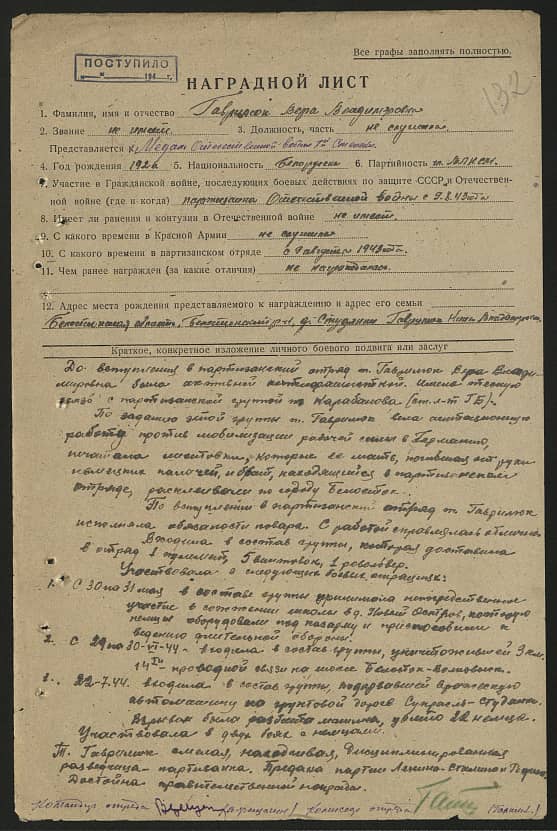 Все графы заполнять полностью.
ПОСТУПИЛО
194 г.
132
НАГРАДНОЙ ЛИСТ
1. Фамилия, имя и отчество Гаврилюк Вера Владимировна
2. Звание не имеет. 3. Должность, часть не служила
Представляется к Медали Отечественной войны 1й Степени.
4. Год рождения 1926 5. Национальность Белоруска 6. Партийность чл. ВЛКСМ
7. Участие в Гражданской войне, последующих боевых действиях по защите СССР и Отечествен-
ной войне (где и когда) партизанка Отечественной войны с 9.8.43 года
8. Имеет ли ранения и контузии в Отечественной войне не имеет.
9. С какого времени в Красной Армии не служила
10. С какого времени в партизанском отряде с 9 августа 1943 года.
11. Чем ранее награжден (за какие отличия) не награждалась.
12. Адрес места рождения представляемого к награждению и адрес его семьи
Белостокская область, Белостокский р-н, д. Студянки Гаврилюк
Краткое, конкретное изложение личного боевого подвига или заслуг
До вступления в партизанский отряд т. Гаврилюк Вера Влади-
мировна была активной антифашисткой. Имела тесную
связь с партизанской группой т. Карабанова (ст. л-т ГБ).
По заданию этой группы т. Гаврилюк вела агитационную
работу против мобилизации рабочей силы в Германию,
печатала листовки, которые ее мать, погибшая от руки
немецких палачей, и брат, находящийся в партизанском
отряде, расклеивали по городу Белосток.
По вступлении в партизанский отряд т. Гаврилюк
исполняла обязанности повара. С работой справлялась отлично.
Входила в состав группы, которая доставила
в отряд 1 пулемет, 5 винтовок, 1 револьвер.
Участвовала в следующих боевых операциях:
1. С 30 на 31 мая в составе группы принимала непосредственное
участие в сожжении школы в д. Новый Остров, которую
немцы оборудовали под казарму и приспособили к
ведению длительной обороны.
2. С 29 на 30-VI-44 - входила в состав группы, уничтожившей 3 км.
14ти - проводной связи на шоссе Белосток-Волковыск.
3. 22-7.44. входила в состав группы, подорвавшей вражескую
автомашину на грунтовой дороге Супрасль-Студянки.
Взрывом была разбита машина, убито 22 немца.
Участвовала в двух боях с немцами.
Т. Гаврилюк смелая, находчивая, дисциплинированная
разведчица-партизанка. Предана партии Ленина-Сталина и Родине.
Достойна правительственной награды.
Командир отряда Комиссар отряда